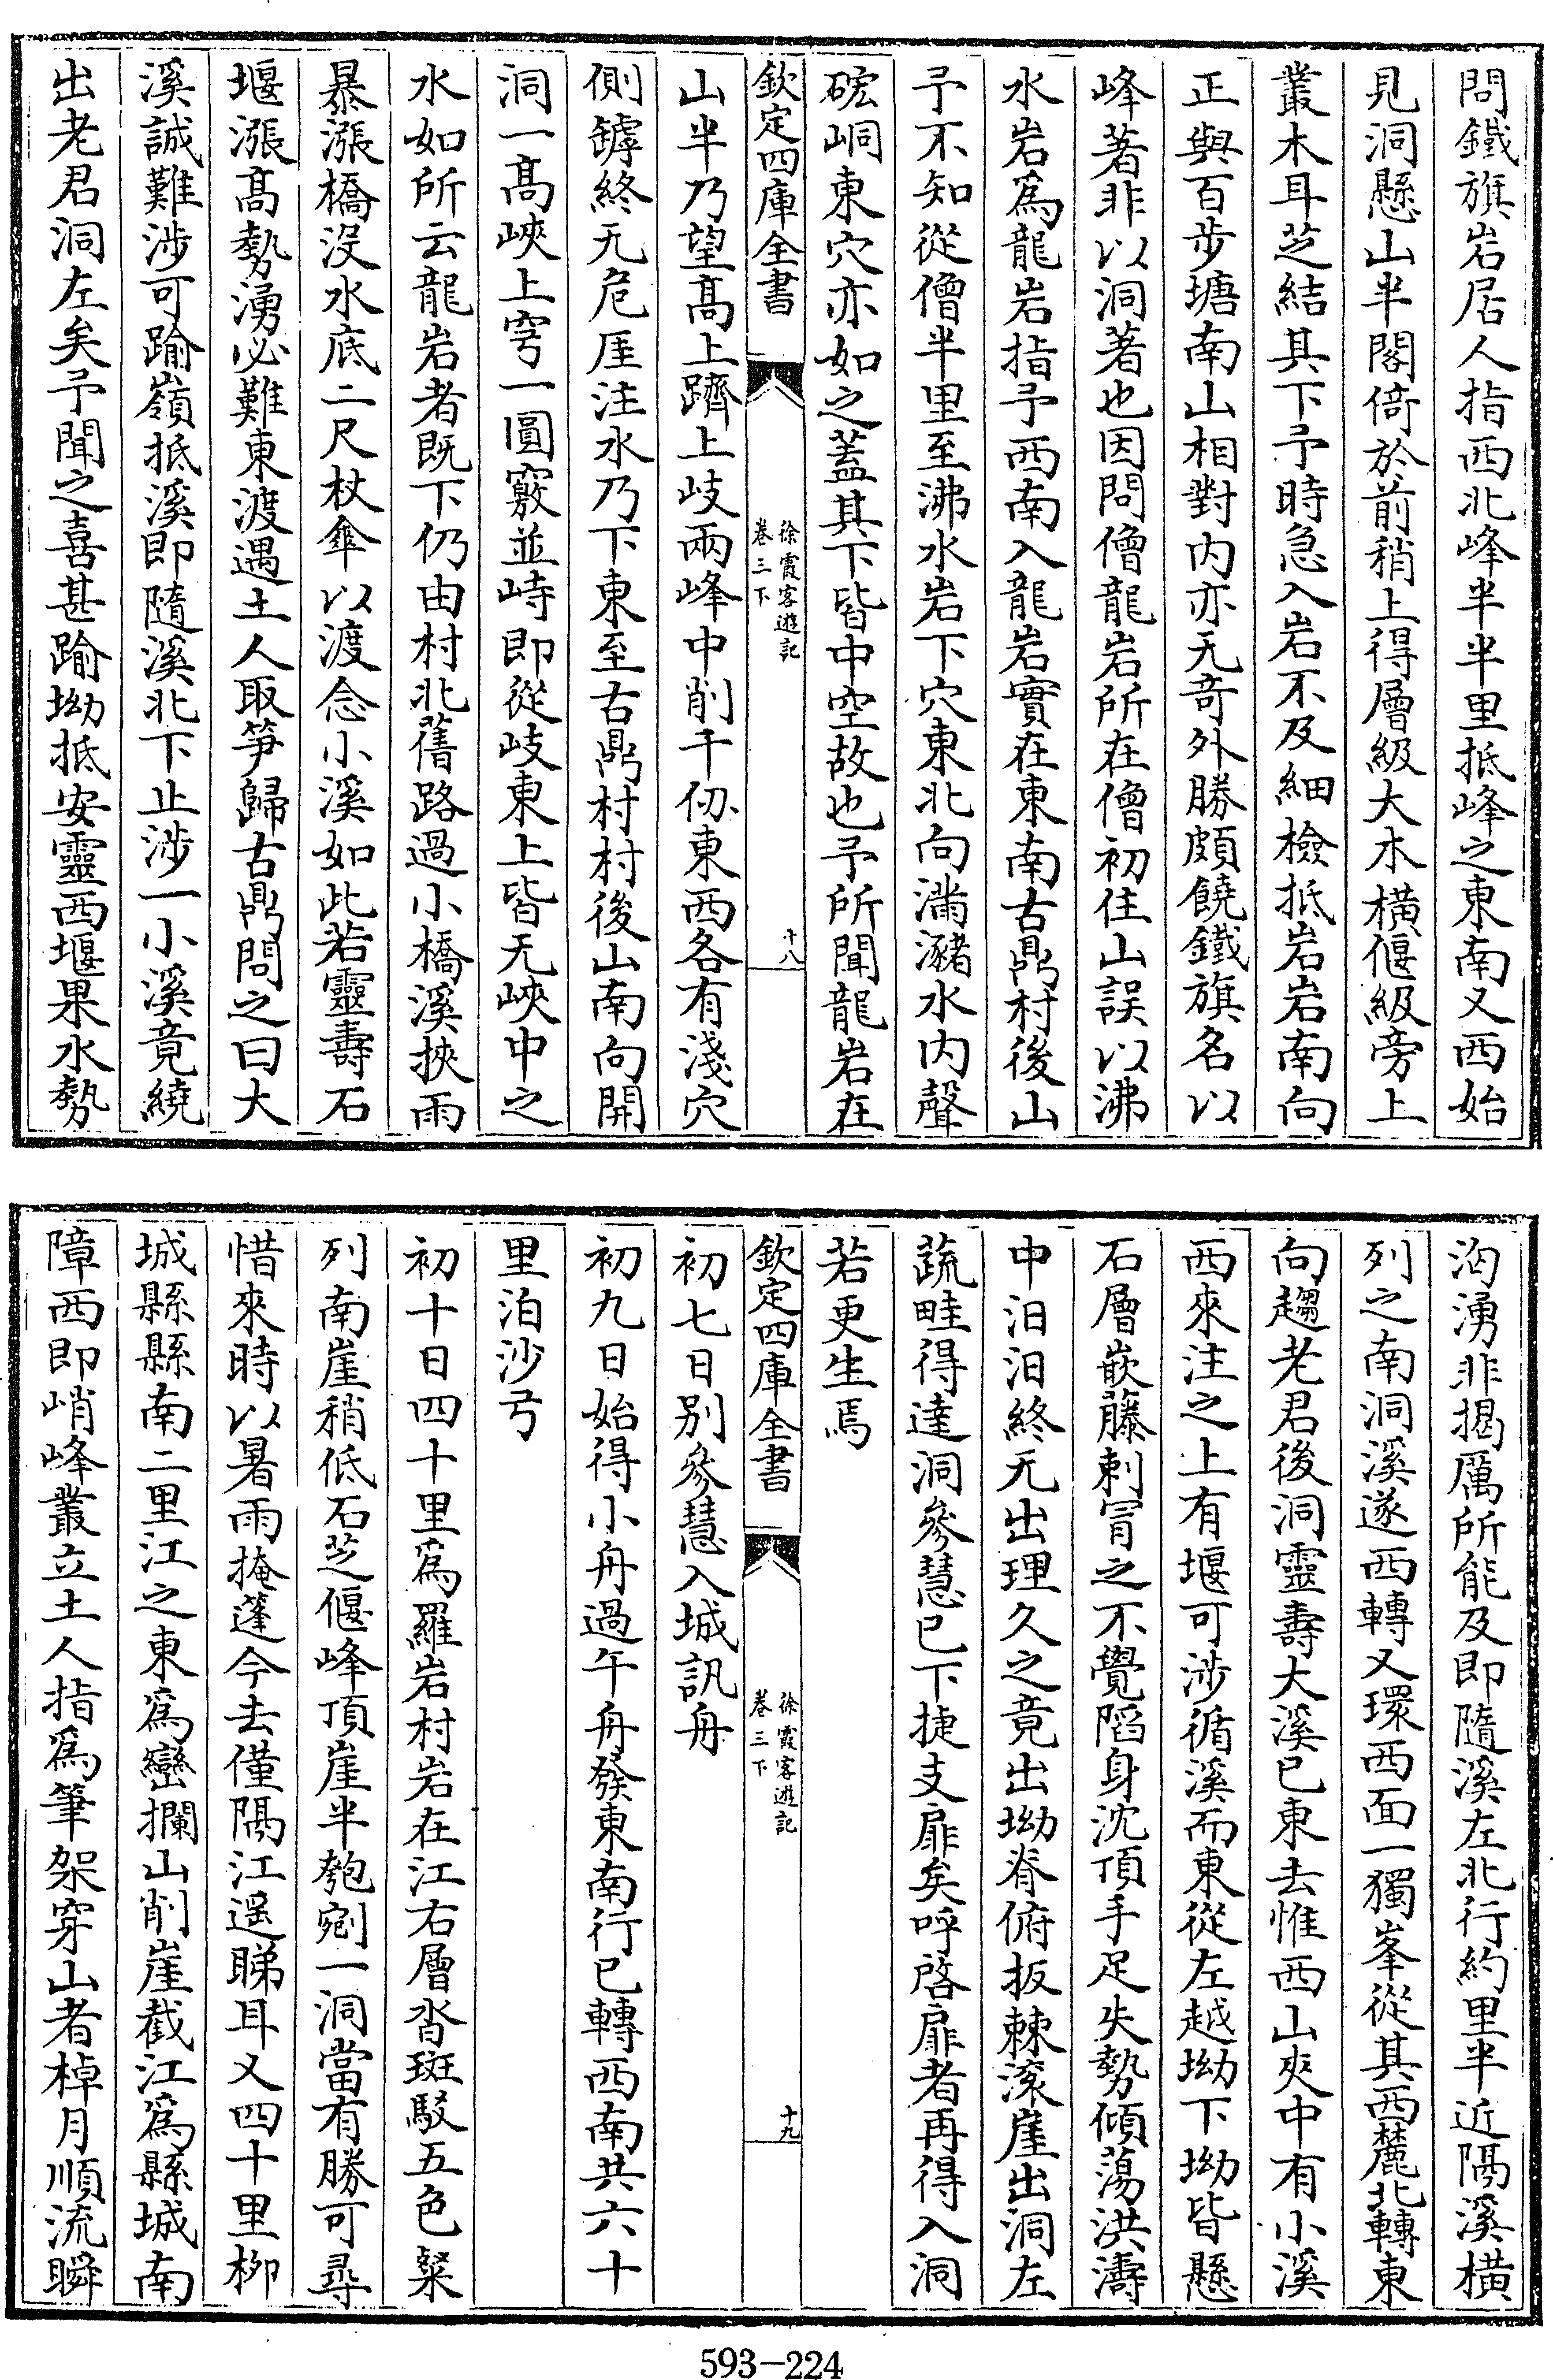 問鐵旗岩居人指西北峰半半里抵峰之東南又西始
見洞懸山半閣倚於前稍上得層級大木橫偃級旁上
叢木耳芝結其下予時急入岩不及細檢抵岩岩南向
正與百步塘南山相對内亦无奇外勝頗饒鐵旗名以
峰著非以洞著也因問僧龍岩所在僧初住山誤以沸
水岩爲龍岩指予西南入龍岩實在東南古鼎村後山
予不知從僧半里至沸水岩下穴東北向滿瀦水内聲
硿峒東穴亦如之蓋其下皆中空故也予所聞龍岩在
欽定四庫全書
徐霞客遊記
卷三下
十八
山半乃望高上躋上岐兩峰中削千仞東西各有淺穴
側罅終无危厓注水乃下東至古鼎村村後山南向開
洞一高峽上穹一圓竅並峙即從岐東上皆无峽中之
水如所云龍岩者既下仍由村北舊路過小橋溪挾雨
暴漲橋没水底二尺杖傘以渡念小溪如此若靈壽石
堰漲高勢湧必難東渡遇土人取笋歸古鼎問之曰大
溪誠難涉可踰嶺抵溪即隨溪北下止涉一小溪竟繞
出老君洞左矣予聞之喜甚踰坳抵安靈西堰果水勢
洶湧非揭厲所能及即隨溪左北行約里半近隔溪橫
列之南洞溪遂西轉又環西面一獨峯從其西麓北轉東
向趨老君後洞靈壽大溪已東去惟西山夾中有小溪
西來注之上有堰可涉循溪而東從左越坳下坳皆懸
石層嵌藤刺冒之不覺䧟身沈頂手足失勢傾蕩洪濤
中汨汨終无出理久之竟出坳脊俯扳棘滚崖出洞左
蔬畦得達洞參慧已下揵支扉矣呼啓扉者再得入洞
若更生焉
欽定四庫全書
徐霞客遊記
卷三下
十九
初七日别參慧入城訊舟
初九日始得小舟過午舟發東南行已轉西南共六十
里泊沙弓
初十日四十里爲羅岩村岩在江右層沓斑駁五色粲
列南崖稍低石芝偃峰頂崖半匏剜一洞當有勝可尋
惜來時以暑雨掩篷今去僅隔江遥睇耳又四十里柳
城縣縣南二里江之東爲巒攔山削崖截江爲縣城南
障西即峭峰叢立土人指爲筆架穿山者棹月順流瞬
593-224